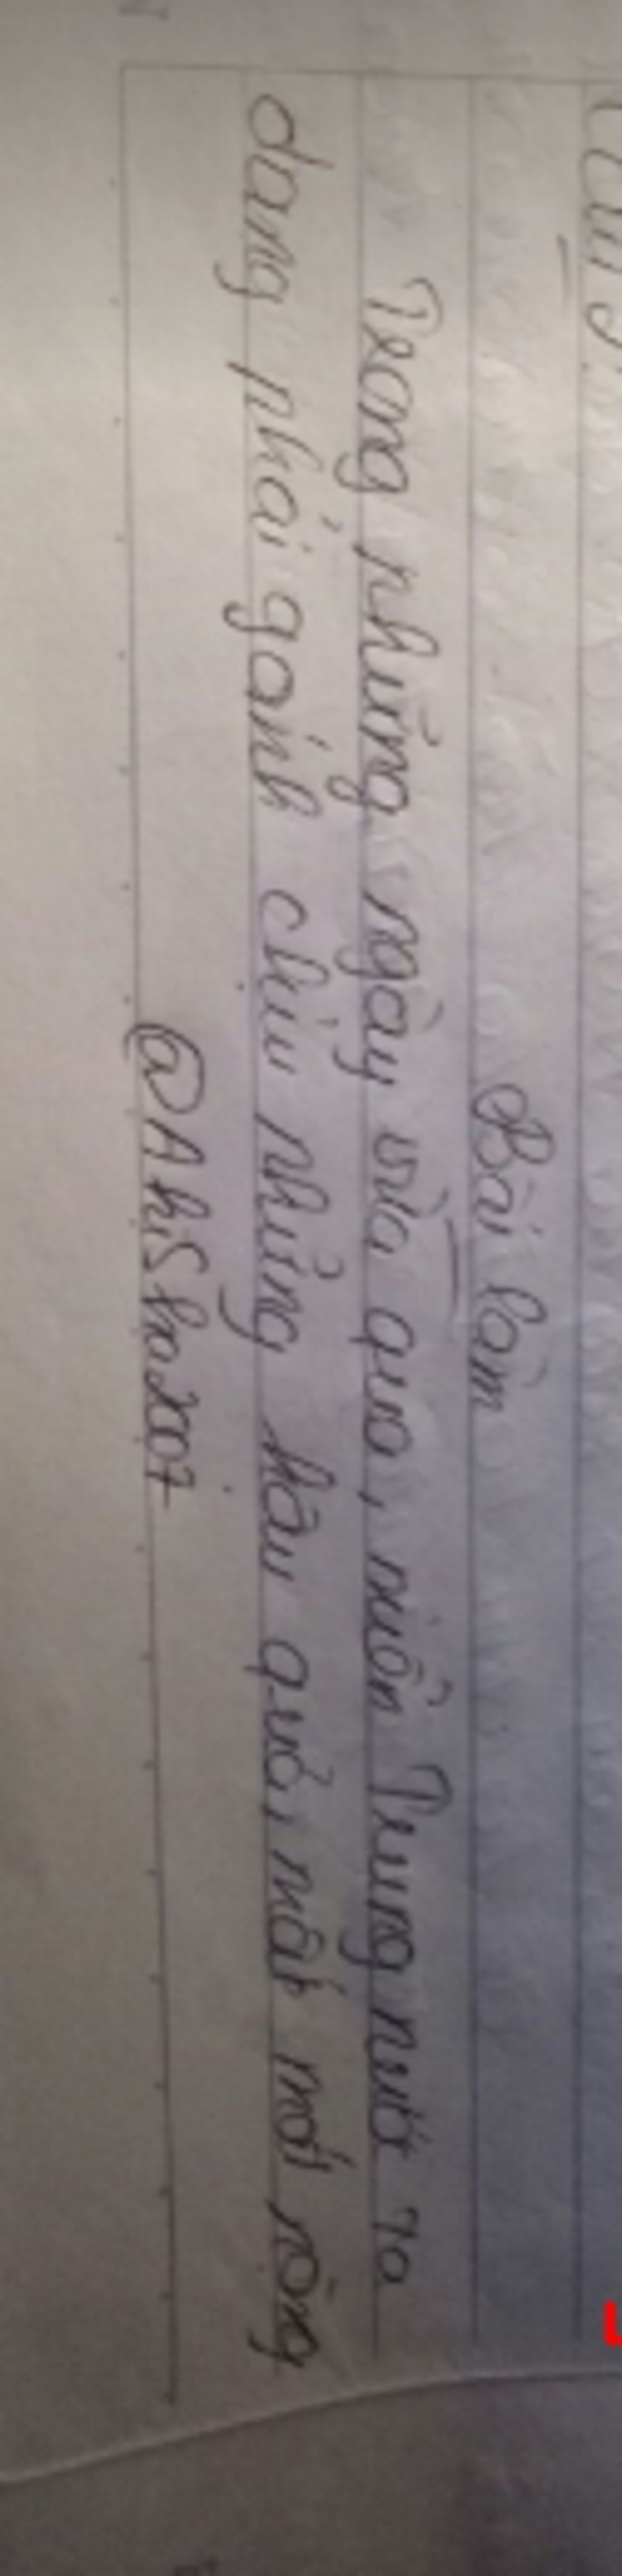 Bài làm
Trong những ngày vừa qua, miền Trung nước ta
đang phải gánh chịu những hậu quả, mất mát nặng
@Ahisha2007